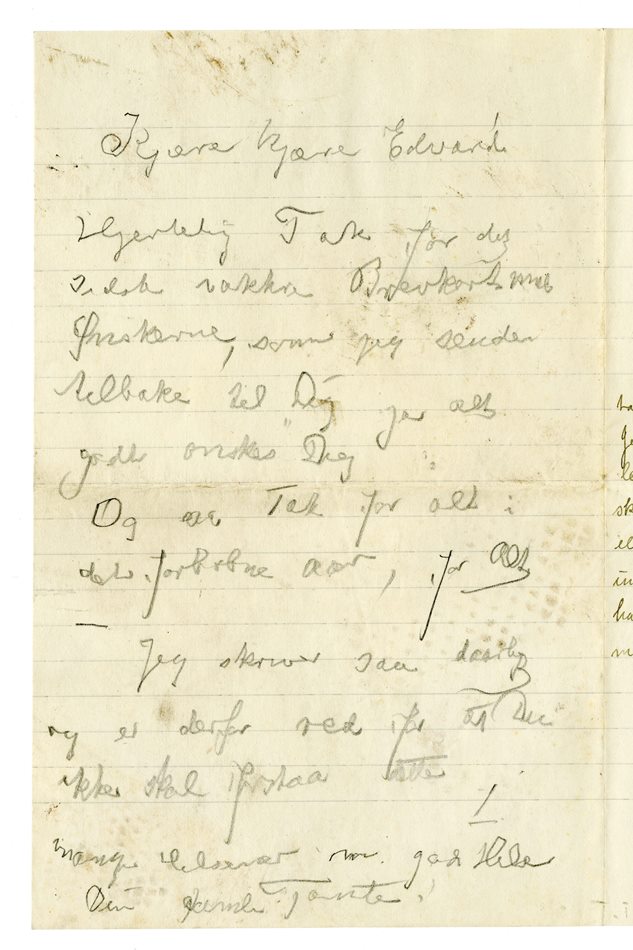 Kjære kjære Edvard
Hjertelig Tak for det
sidste vakkre Brevkort med
Ønskerne, som jeg sender
tilbake til Dig jar alt
godt ønskes Dig
Og saa Tak for alt i
det forløbne aar, for Alt
—
Jeg skriver saa daarlig
og er derfor ræd for at Du
ikke skal forstaa dette
!
mange Hilsener m. god Helse
Din gamle Tante.